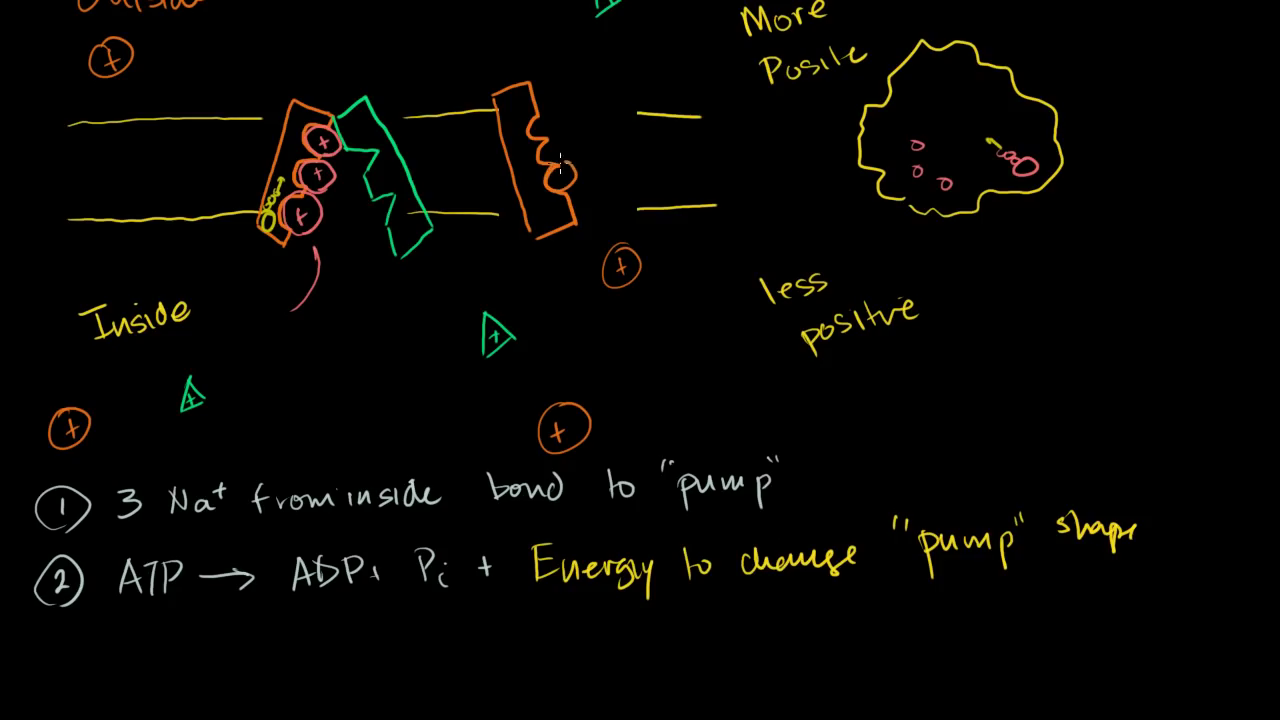 Outside
More
Posite
Inside
less
positive
① 3 Na⁺ from inside bond to "pump"
② ATP → ADP + Pi + Energy to change "pump" shape